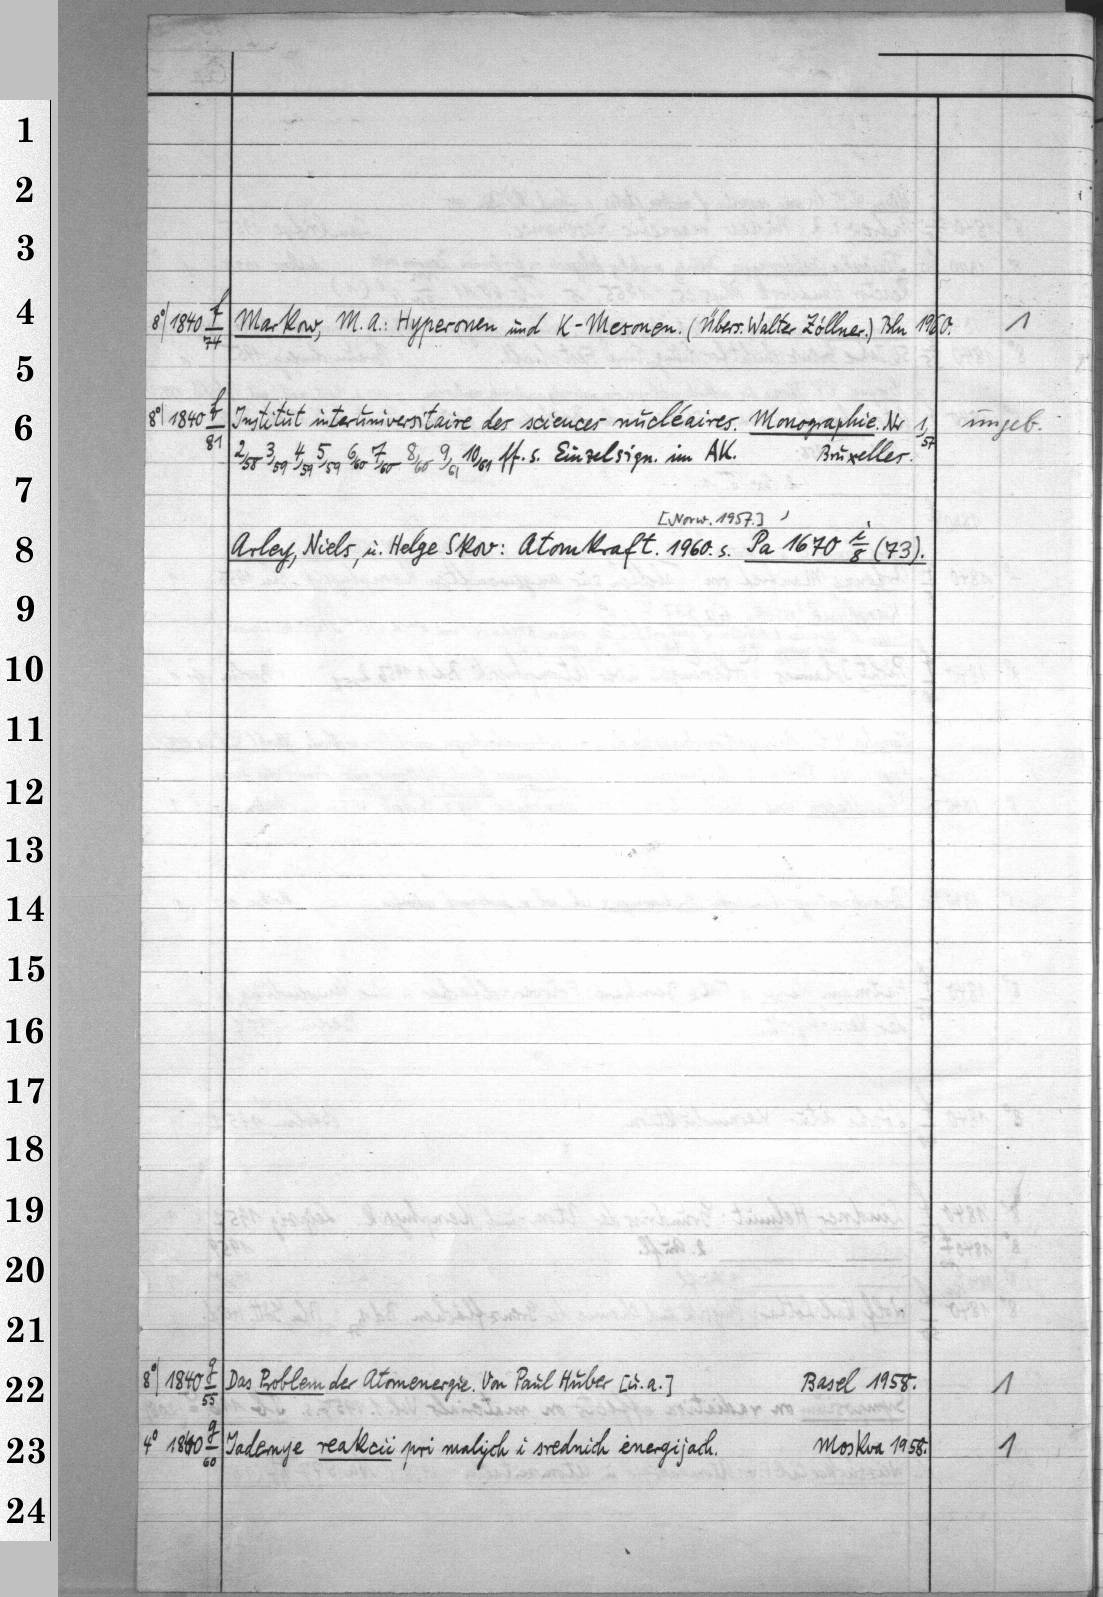 1
2
3
4
8° 1840 f/74 Markow, M. A.: Hyperonen und K-Mesonen. (Übers. Walter Zöllner.) Bln 1960. 1
5
6
8° 1840 f/81 Institut interuniversitaire des sciences nucléaires. Monographie. Nr 1/57 ungeb.
2/58 3/59 4/59 5/59 6/60 7/60 8/60 9/61 10/61 ff. s. Einzelsign. im AK. Bruxelles.
7
[Norw. 1957.]
8
Arley, Niels, u. Helge Skov: Atomkraft. 1960. s. Pa 1670 i/8 (73).
9
10
11
12
13
14
15
16
17
18
19
20
21
22
8° 1840 g/55 Das Problem der Atomenergie. Von Paul Huber [u. a.] Basel 1958. 1
23
4° 1840 g/60 Jadernye reakcii pri malych i srednich energijach. Moskva 1958. 1
24